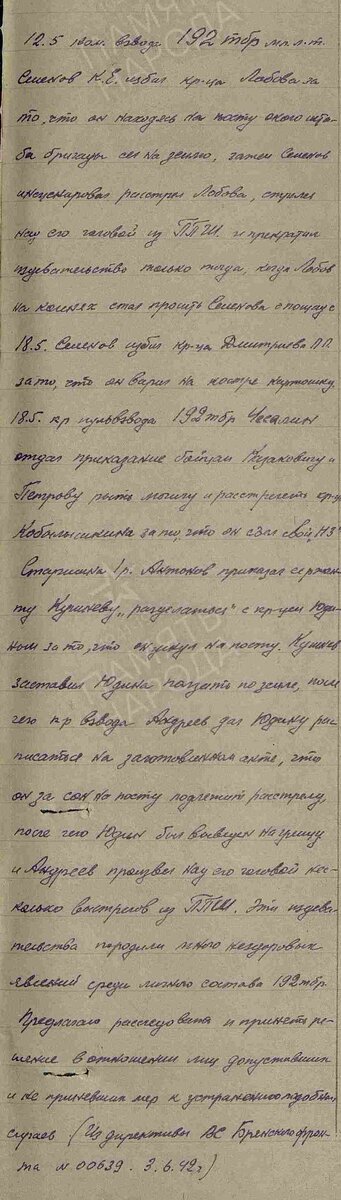 12.5 ком. взвода 192 тбр мл. л-т.
Семенов К.Е. избил кр-ца Лобова за
то, что он находясь на посту около шта-
ба бригады сел на землю, затем Семенов
инсценировал расстрел Лобова, стрелял
над его головой из ППШ и прекратил
издевательство только тогда, когда Лобов
на коленях стал просить Семенова о пощаде
18.5. Семенов избил кр-ца Дмитриева П.П.
за то, что он варил на костре картошку
18.5. кр пульвзвода 192 тбр Чесалин
отдал приказание бойцам Казаковичу и
Петрову рыть могилу и расстрелять кр-ца
Кобылышкина за то, что он съел свой "НЗ"
Старшина 1 р. Антонов приказал сержан-
ту Куриневу "разделаться" с кр-цем Юди-
ном за то, что он уснул на посту.
заставил Юдина ползать по земле, после
чего к-р взвода Андреев дал Юдину рас-
писаться на заготовленном акте, что
он за сон на посту подлежит расстрелу,
после чего Юдин был выведен на улицу
и Андреев произвел над его головой нес-
колько выстрелов из ППШ. Эти издева-
тельства породили много нездоровых
явлений среди личного состава 192 тбр
Предлагаю расследовать и принять ре-
шение в отношении лиц допустивших
и не принявших мер к устранению подобных
случаев (Из директивы ВС Брянского фрон-
та N 00639. 3.6.42 г)
ПАМЯТЬ
НАРОДА
ПАМЯТЬ
НАРОДА